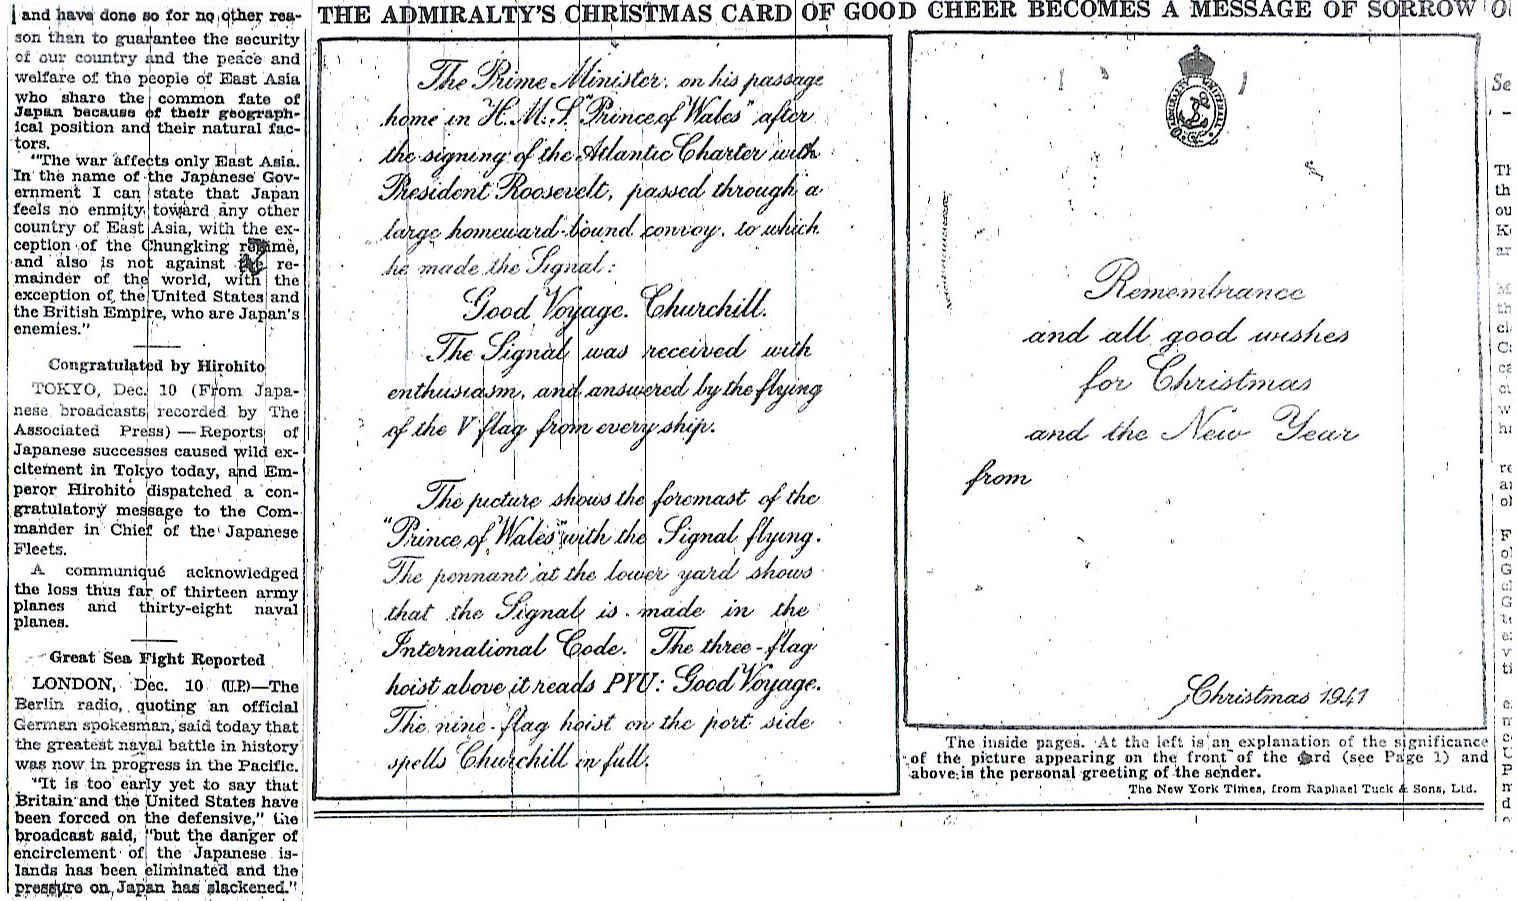 and have done so for no other rea-
son than to guarantee the security
of our country and the peace and
welfare of the people of East Asia
who share the common fate of
Japan because of their geograph-
ical position and their natural fac-
tors.
"The war affects only East Asia.
In the name of the Japanese Gov-
ernment I can state that Japan
feels no enmity toward any other
country of East Asia, with the ex-
ception of the Chungking regime,
and also is not against the re-
mainder of the world, with the
exception of the United States and
the British Empire, who are Japan's
enemies."
Congratulated by Hirohito
TOKYO, Dec. 10 (From Japa-
nese broadcasts recorded by The
Associated Press) — Reports of
Japanese successes caused wild ex-
citement in Tokyo today, and Em-
peror Hirohito dispatched a con-
gratulatory message to the Com-
mander in Chief of the Japanese
Fleets.
A communiqué acknowledged
the loss thus far of thirteen army
planes and thirty-eight naval
planes.
Great Sea Fight Reported
LONDON, Dec. 10 (U.P.)—The
Berlin radio, quoting an official
German spokesman, said today that
the greatest naval battle in history
was now in progress in the Pacific.
"It is too early yet to say that
Britain and the United States have
been forced on the defensive," the
broadcast said, "but the danger of
encirclement of the Japanese is-
lands has been eliminated and the
pressure on Japan has slackened."
THE ADMIRALTY'S CHRISTMAS CARD OF GOOD CHEER BECOMES A MESSAGE OF SORROW
The Prime Minister, on his passage
home in H.M.S. "Prince of Wales" after
the signing of the Atlantic Charter with
President Roosevelt, passed through a
large homeward-bound convoy, to which
he made the Signal:
Good Voyage. Churchill.
The Signal was received with
enthusiasm, and answered by the flying
of the V flag from every ship.
The picture shows the foremast of the
"Prince of Wales" with the Signal flying.
The pennant at the lower yard shows
that the Signal is made in the
International Code. The three-flag
hoist above it reads PYU: Good Voyage.
The nine-flag hoist on the port side
spells Churchill in full.
Remembrance
and all good wishes
for Christmas
and the New Year
from
Christmas 1941
The inside pages. At the left is an explanation of the significance
of the picture appearing on the front of the card (see Page 1) and
above is the personal greeting of the sender.
The New York Times, from Raphael Tuck & Sons, Ltd.